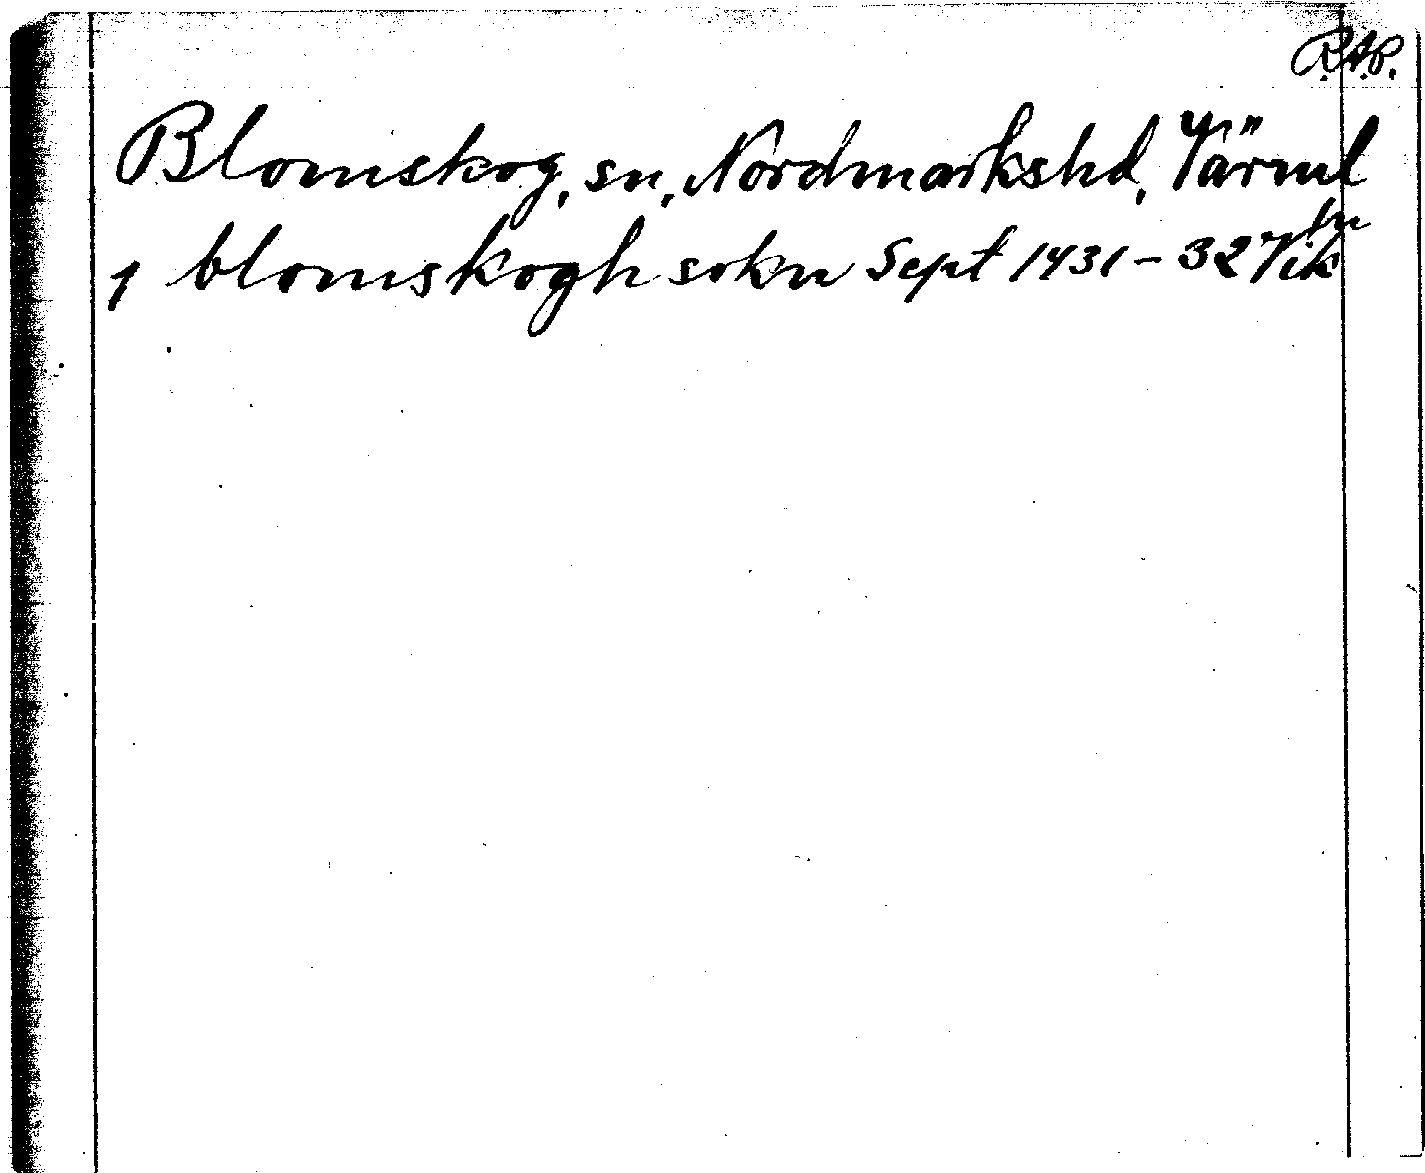 R.A.P.
Blomskog, sn, Nordmarkshd, Värml
ꞁ blomskogh sokn Sept 1431-32 Vik